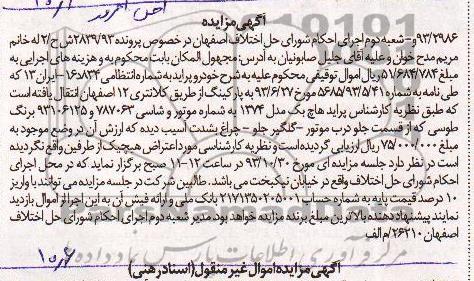 آگهی مزایده
۹۳/۲۹۸۶و-شعبه دوم اجرای احکام شورای حل اختلاف اصفهان در خصوص پرونده ۲۸۳۹/۹۳ش ح/۲ له خانم
مریم مدح خوان و علیه آقای جلیل صابونیان به آدرس: مجهول المکان بابت محکوم به و هزینه های اجرایی به
مبلغ ۵۱/۶۸۴/۷۸۴ ریال اموال توقیفی محکوم علیه به شرح خودرو پراید به شماره انتظامی ۸۳۴د۱۶-ایران ۱۳ که
طی نامه به شماره ۵۶۸۵/۹۳/۵/۴۱ مورخ ۹۳/۶/۲۷ به پارکینگ از طریق کلانتری ۱۲ اصفهان انتقال یافته است
که طبق نظریه کارشناس پراید هاچ بک مدل ۱۳۷۴ به شماره موتور و شاسی ۷۸۷۰۶۳ و ۹۳۱۰۶۱۲۵ برنگ
طوسی که از قسمت جلو درب موتور -گلگیر جلو - چراغ بشدت آسیب دیده که ارزش آن در وضع موجود به
مبلغ ۷۵/۰۰۰/۰۰۰ ریال ارزیابی گردیده است و نظریه کارشناسی مورد اعتراض هیچیک از طرفین واقع نگردیده
است در نظر دارد جلسه مزایده ای مورخ ۹۳/۱۰/۳۰ در ساعت ۱۲-۱۱ صبح برگزار نماید که در محل اجرای
احکام شورای حل اختلاف واقع در خیابان نیکبخت می باشد. طالبین شرکت در جلسه مزایده می توانند با واریز
۱۰ درصد قیمت پایه به شماره حساب ۲۱۷۱۳۵۰۲۰۵۰۰۱ بانک ملی و ارائه فیش آن به این اجرا از اموال بازدید
نمایند پیشنهاد دهنده بالاترین مبلغ برنده مزایده خواهد بود. مدیر شعبه دوم اجرای احکام شورای حل اختلاف
اصفهان ۲۶۲۱۰/م الف
آگهی مزایده اموال غیر منقول (اسناد رهنی)